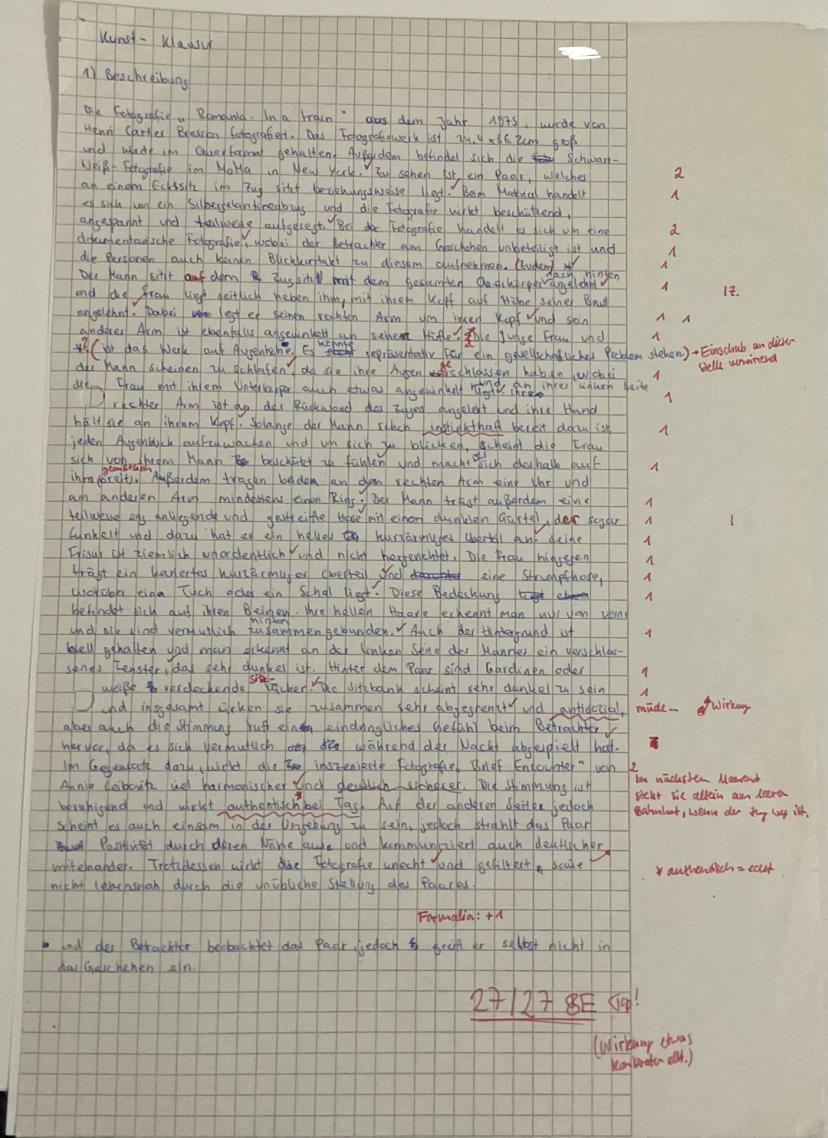 Kunst - Klausur
1) Beschreibung
Die Fotografie „Romania. In a train" aus dem Jahr 1975, wurde von
Henri Cartier Bresson fotografiert. Das Fotografiewerk ist 24,4 x 36.2cm groß
und wurde im Querformat gehalten. Außerdem befindet sich die Schwarz-
Weiß-Fotografie im MoMa in New York. Zu sehen ist ein Paar, welches 2
an einem Ecksitz im Zug sitzt beziehungsweise liegt. Beim Material handelt 1
es sich um ein Silbergelantineabzug und die Fotografie wirkt beschützend,
angespannt und teilweise aufgeregt. Bei der Fotografie handelt es sich um eine 2
dokumentarische Fotografie, wobei der Betrachter am Geschehen unbeteiligt ist und 1
die Personen auch keinen Blickkontakt zu diesem aufnehmen. (Zudem) 1
Der Mann sitzt auf dem Zugsitz mit dem gesamten Oberkörper nach hinten angelehnt 1 17.
und die Frau liegt seitlich neben ihm, mit ihrem Kopf auf Höhe seiner Brust
angelehnt. Dabei legt er seinen rechten Arm um ihren Kopf und sein 1 1
anderer Arm ist ebenfalls angewinkelt an seiner Hüfte. Die junge Frau und 1
(ist das Werk auf Augenhöhe. Es könnte repräsentativ für ein gesellschaftliches Problem stehen.) → Einschub an dieser Stelle verwirrend
der Mann scheinen zu schlafen, da sie ihre Augen geschlossen haben, wobei 1
die Frau mit ihrem Unterkörper auch etwas angewinkelt liegt an ihrer linken Seite 1
rechter Arm ist an der Rückwand des Zuges angelehnt und ihre Hand
hält sie an ihrem Kopf. Solange der Mann schon instinkthaft bereit dazu ist 1
jeden Augenblick aufzuwachen und um sich zu blicken, scheint die Frau
sich von ihrem Mann beschützt zu fühlen und macht es sich deshalb auf 1
ihm gemütlich. Außerdem tragen beiden an dem rechten Arm eine Uhr und
am anderen Arm mindestens einen Ring. Der Mann trägt außerdem eine 1
teilweise eng anliegende und gestreifte Hose mit einem dunklen Gürtel, der sogar 1 1
funkelt und dazu hat er ein helles kurzärmliges Oberteil an. Seine 1
Frisur ist ziemlich unordentlich und nicht hergerichtet. Die Frau hingegen 1
trägt ein kariertes kurzärmliger Oberteil und eine Strumpfhose, 1
worüber eine Tuch oder ein Schal liegt. Diese Bedeckung 1
befindet sich auf ihren Beinen. Ihre hellen Haare erkennt man nur von vorne
und sie sind vermutlich hinten zusammengebunden. Auch der Hintergrund ist 1
hell gehalten und man erkennt an der linken Seite des Mannes ein verschlos-
senes Fenster, das sehr dunkel ist. Hinter dem Paar sind Gardinen oder 1
weiße verdeckende Tücher. Die Sitzbank scheint sehr dunkel zu sein 1
und insgesamt wirken sie zusammen sehr abgegrenzt und antisozial, müde - Wirkung
aber auch die Stimmung ruft ein eindringliches Gefühl beim Betrachter
hervor, da es sich vermutlich während der Nacht abgespielt hat.
Im Gegensatz dazu, wirkt die inszenierte Fotografie „Brief Encounter" von 2
Annie Leibovitz viel harmonischer und deutlich sicherer. Die Stimmung ist
beruhigend und wirkt authentisch bei Tag. Auf der anderen Seite jedoch
Im nächsten Moment steht sie allein am leeren Bahnhof, wenn der Zug weg ist.
scheint es auch einsam in der Umgebung zu sein, jedoch strahlt das Paar
Positivität durch deren Nähe aus und kommuniziert auch deutlicher
miteinander. Trotzdessen wirkt die Fotografie unecht und gefiltert, sowie
* authentisch = echt
nicht lebensnah durch die unübliche Stellung des Paares.
Formalia: +1
und der Betrachter beobachtet das Paar, jedoch greift er selbst nicht in
das Geschehen ein.
27/27 BE Top!
(Wirkung etwas